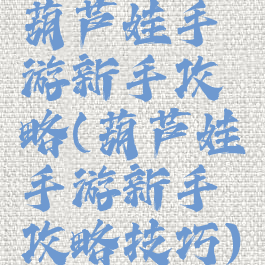 葫芦娃手
游新手攻
略(葫芦娃
手游新手
攻略技巧)